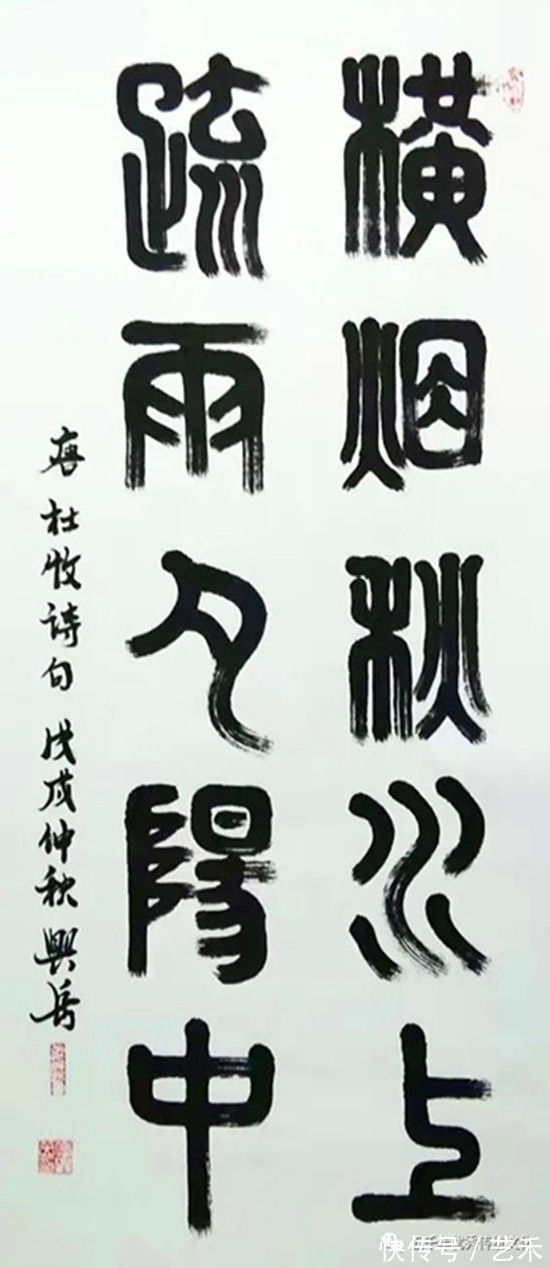 横烟秋水上
疏雨夕阳中
唐杜牧诗句戊戌仲秋兴岳
快传号/艺禾